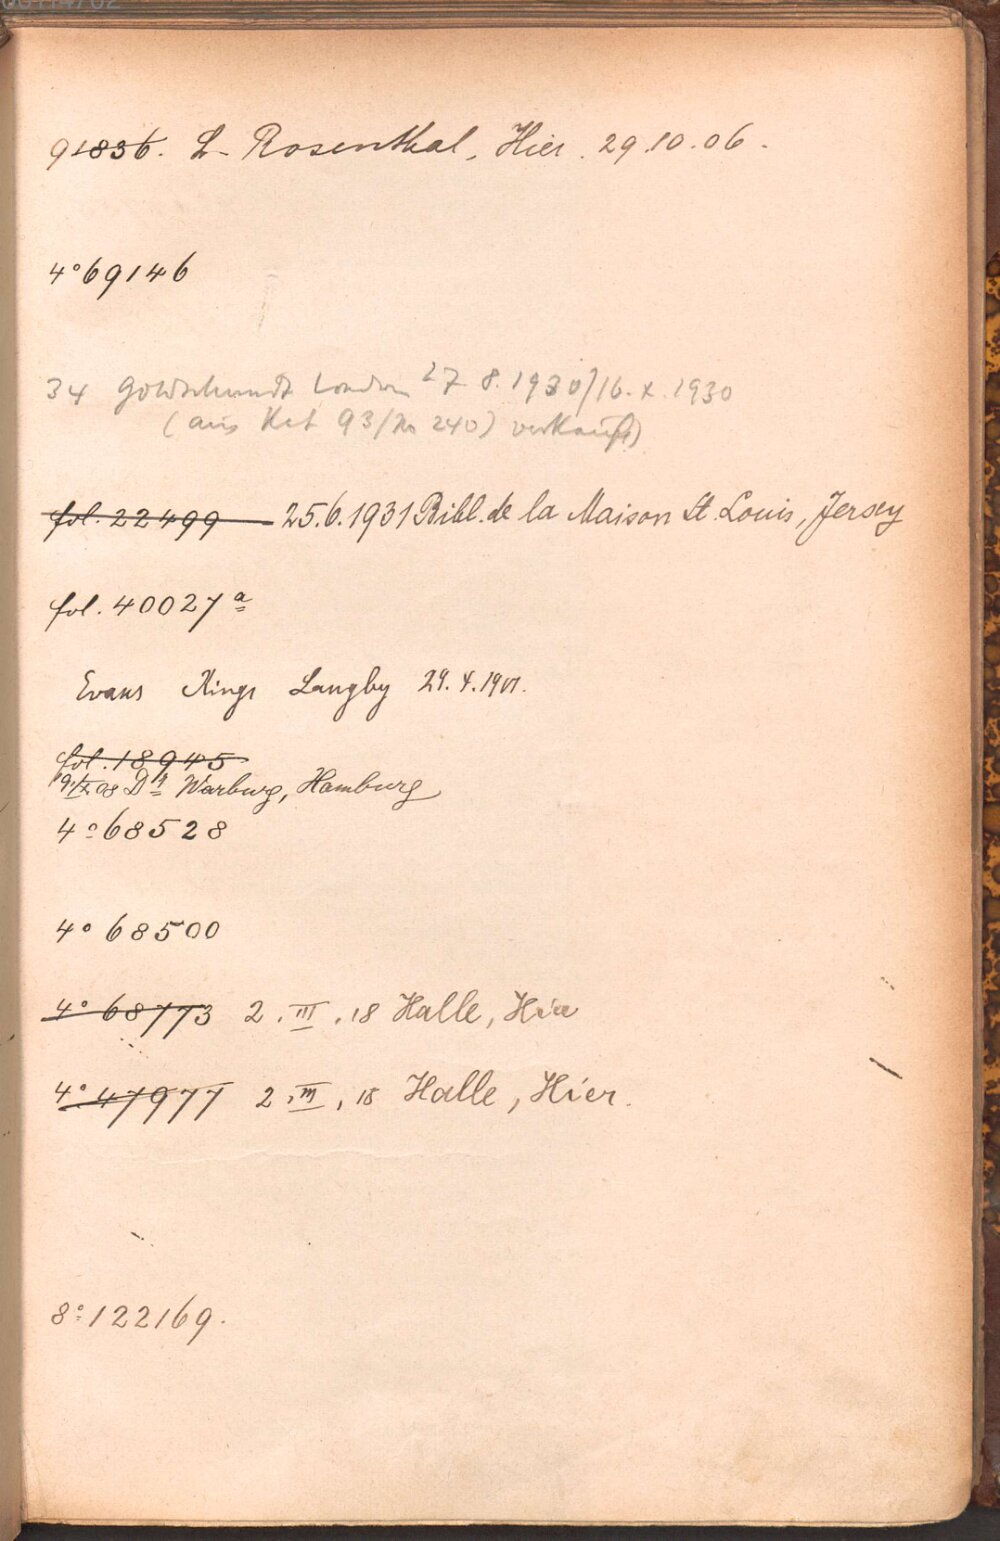 91836. L. Rosenthal, Hier. 29.10.06.
4° 69146
34 Goldschmidt London 27 8. 1930/16. X. 1930
(aus Kat 93/No 240) verkauft)
fol. 22499 — 25.6.1931 Bibl. de la Maison St. Louis, Jersey
fol. 40027 a
Evans Kings Langby 29. 4.
fol. 18945
19/IX 08 Dr Warburg, Hamburg
4° 68528
4° 68500
4° 68773 2. III. 18 Halle, Hier
4° 47977 2. III, 18 Halle, Hier.
8° 122169.